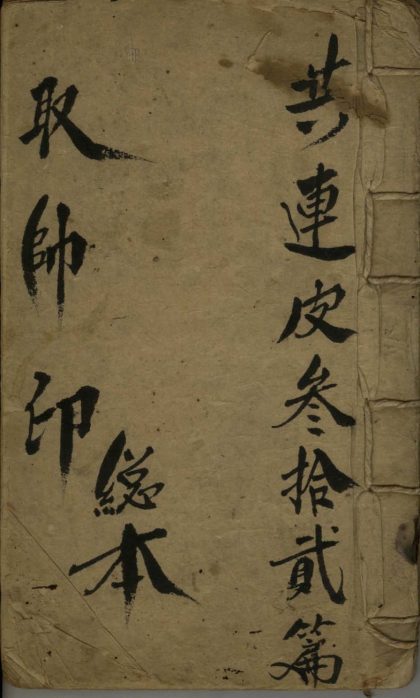 共連皮叁拾貳篇
取帥印
総本